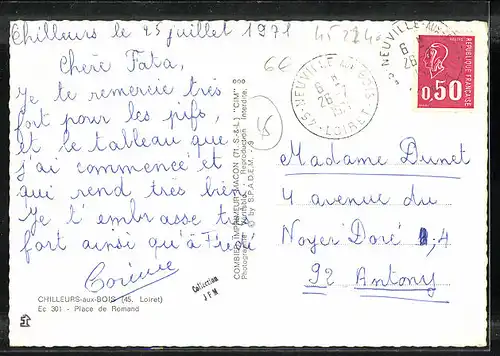 Chilleurs le 25 juillet 1971
Chère Fata,
Je te remercie très
fort pour les pifs,
et le tableau que
j'ai commencé et
qui rend très bien
Je t'embrasse très
fort ainsi qu'à
Corinne
CHILLEURS-aux-BOIS (45. Loiret)
Ec 301 - Place de Romand
COMBIER IMPRIMEUR MACON (71. S.-&-L.) "CIM"
Photographie véritable - Reproduction interdite.
© by S.P.A.D.E.M.
Collection
J F M
45 NEUVILLE AUX BOIS
6 H
26 - 7
1971
LOIRET
NEUVILLE-AUX-
6 H
26
REPUBLIQUE FRANCAISE
POSTES
0,50
Madame Dunet
4 avenue du
Noyer Doré 4
92 Antony